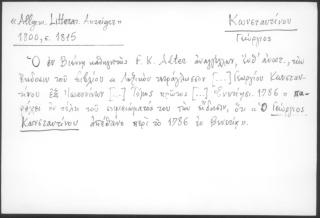 «Allgm. Litterar. Anzeiger»
1800, σ. 1815
Κωνσταντίνου
Γεώργιος
Ὁ ἐν Βιέννῃ καθηγητὴς F. K. Alter ἀναγγέλλων, τὴν
ἔκδοσιν τοῦ βιβλίου « Λεξικὸν τετράγλωσσον [...] Γεωργίου Κωνσταν-
τίνου ἐξ Ἰωαννίνων [...] Τόμος πρῶτος [...] Ἐνετίησι. 1786 » πα-
ρέχει ἐν τέλει τοῦ σημειώματός του τὴν εἴδησιν, ὅτι « Ὁ Γεώργιος
Κωνσταντίνου ἀπέθανε περὶ τὸ 1786 ἐν Βενετίᾳ ».